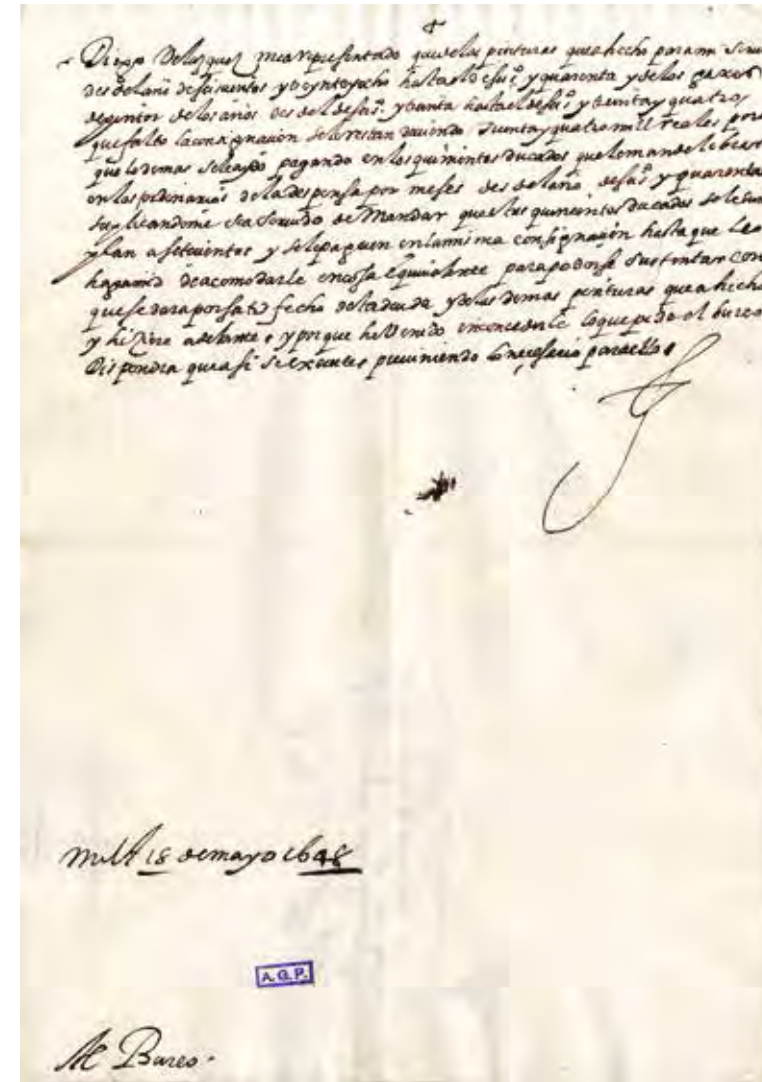 Diego Velazquez me a representado que de las pinturas que a hecho para mi serui
desde el año de seiscientos y veynte y ocho hasta el de seisº y quarenta y de los gaxes
de pintor de los años desde el de seisº y treinta hasta el de seisº y treinta y quatro
que falto la consignacion se le restan deuiendo treinta y quatro mil reales por
que lo demas se le a ydo pagando en los quinientos ducados que le mande librar
en los ordinarios de la despensa por meses desde el año de seisº y quarenta
suplicandome sea seruido de mandar que estos quinientos ducados se le cun
plan a setecientos y se le paguen en la misma consignacion hasta que le
haga mrd de acomodarle en cosa equiualente para poderse sustentar con
que se dara por satisfecho desta deuda y de las demas pinturas que a hecho
y hiziere adelante y porque he venido en concederle lo que pide el bureo
dispondra que asi se execute preuiniendo lo necesario para ello
18 de mayo 1648
A. G. P.
Al Bureo.